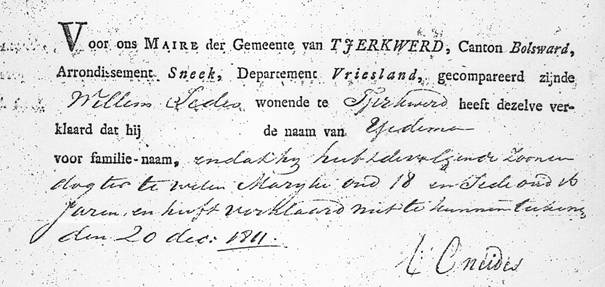 Voor ons MAIRE der Gemeente van TJERKWERD, Canton Bolsward,
Arrondissement Sneek, Departement Vriesland, gecompareerd zijnde
Willem Sedes wonende te Tjerkwerd heeft dezelve ver-
klaard dat hij de naam van
voor familie-naam, en dat hij heeft de volgende zoonen
dogter te weten Marijke oud 18 en Sede oud 16
Jaren, en heeft verklaard niet te kunnen teekenen
den 20 dec: 1811.